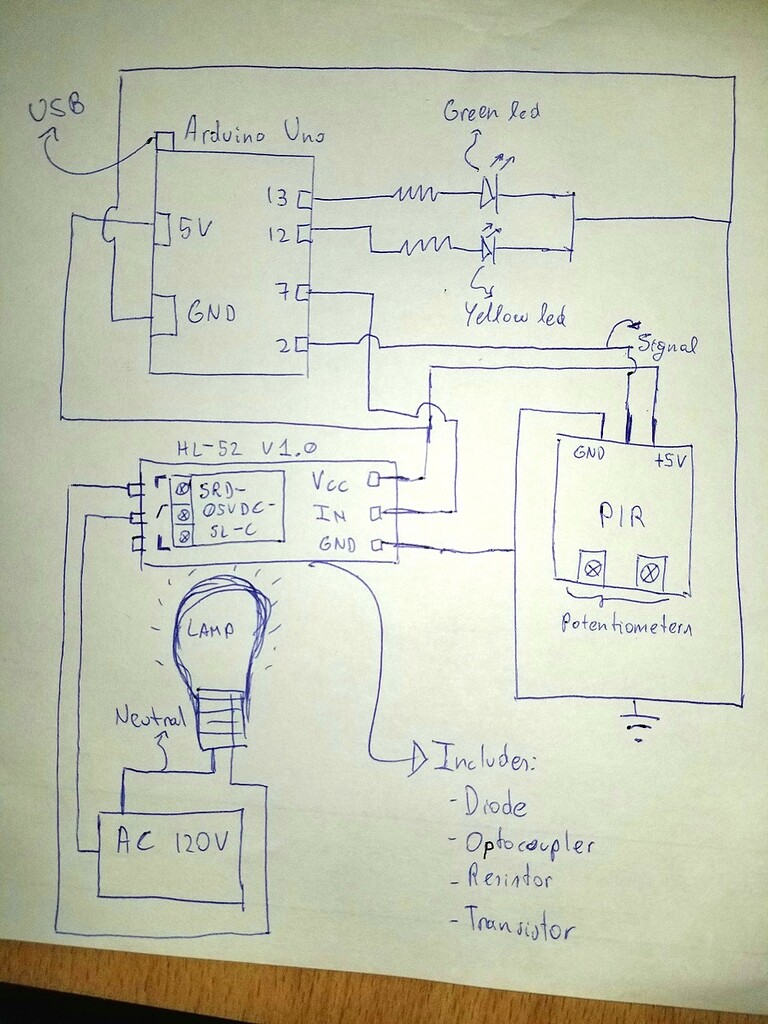 USB
Arduino Uno
Green led
13
5V
12
7
GND
Yellow led
2
Signal
HL-52 V1.0
SRD-
05VDC-
SL-C
Vcc
IN
GND
GND
+5V
PIR
Potentiometers
LAMP
Neutral
AC 120V
Includes:
- Diode
- Optocoupler
- Resistor
- Transistor